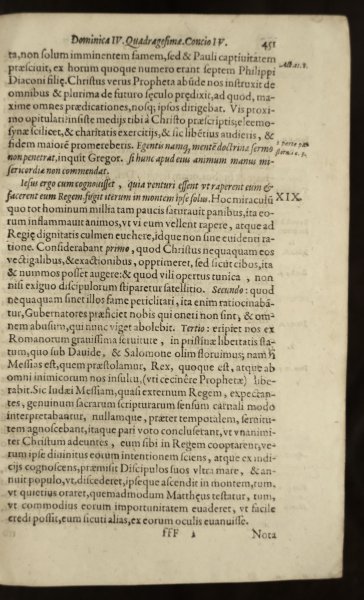 Dominica IV. Quadragesimæ. Concio IV. 451
ta, non solum imminentem famem, sed & Pauli captiuitatem
præsciuit, ex horum quoque numero erant septem Philippi
Diaconi filię. Christus verus Propheta abũde nos instruxit de
omnibus & plurima de futuro sęculo prędixit, ad quod, ma-
xime omnes prædicationes, nosq; ipsos dirigebat. Vis proxi-
mo opitulari? insiste medijs tibi à Christo præscriptis; eleemo-
synæ scilicet, & charitatis exercitijs, & sic libẽtius audieris, &
fidem maiorẽ promereberis. Egentis namq, mentẽ doctrinæ sermo
non penetrat, inquit Gregor. si hunc apud eius animum manus mi-
sericordiæ non commendat.
Act. 21. 8.
3. parte pa-
Iesus ergo cum cognouisset, quia venturi essent vt raperent eum &
facerent eum Regem, fugit iterum in montem ipse solus. Hoc miraculũ
XIX.
quo tot hominum millia tam paucis saturauit panibus, ita eo-
rum inflammauit animos, vt vi eum vellent rapere, atque ad
Regię dignitatis culmen euehere, idque non sine euidenti ra-
tione. Considerabant primo, quod Christus nequaquam eos
vectigalibus, & exactionibus, opprimeret, sed sicut cibus, ita
& nummos posset augere: & quod vili opertus tunica, non
nisi exiguo discipulorum stiparetur satellitio. Secundo: quod
nequaquam sinet illos fame periclitari, ita enim ratiocinabã-
tur, Gubernatores præficiet nobis qui oneri non sint, & om-
nem abusum, qui nunc viget abolebit. Tertio: eripiet nos ex
Romanorum grauissima seruitute, in pristinæ libertatis sta-
tum, quo sub Dauide, & Salomone olim floruimus; nam hi
Messias est, quem præstolamur, Rex, quoque est, atque ab
omni inimicorum nos insultu, (vti cecinêre Prophetæ) libe-
rabit. Sic Iudæi Messiam, quasi externum Regem, expectan-
tes, genuinum sacrarum scripturarum sensum carnali modo
interpretabantur, nullamque, præter temporalem, seruitu-
tem agnoscebant, itaque pari voto concluserant, vt vnanimi-
ter Christum adeuntes, eum sibi in Regem cooptarent, ve-
rum ipse diuinitus eorum intentionem sciens, atque ex indi-
cijs cognoscens, præmisit Discipulos suos vltra mare, & an-
nuit populo, vt, discederet, ipseque ascendit in montem, tum,
vt quietius oraret, quemadmodum Matthęus testatur, tum,
vt commodius eorum importunitatem euaderet, vt facile
credi possit, eum sicuti alias, ex eorum oculis euanuisse.
fff 2 Nota